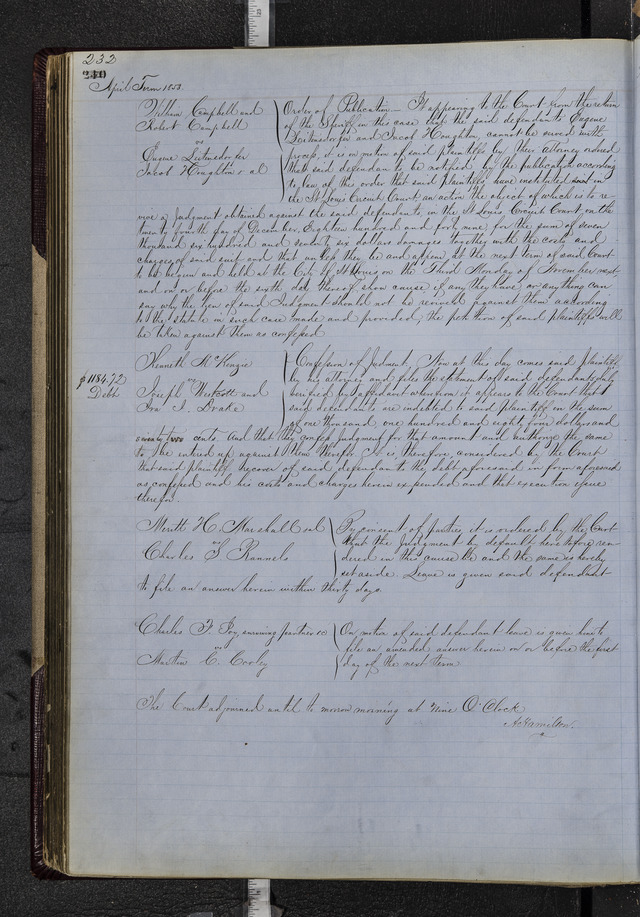 232
230
April Term 1853.
William Campbell and
Robert Campbell
vs
Eugene Leitensdorfer
Jacob Houghton et al
Order of Publication — It appearing to the Court from the return
of the Sheriff in this case that the said defendants Eugene
Leitensdorfer and Jacob Houghton cannot be served with
process, it is on motion of said plaintiffs by their attorney ordered
that said defendant to be notified by the publication according
to law of this order that said plaintiffs have instituted suit in
the St Louis Circuit Court, an action the object of which is to re
vive a judgment obtained against the said defendants, in the St Louis Circuit Court, on the
twenty fourth day of December, Eighteen hundred and forty nine for the sum of seven
thousand six hundred and seventy six dollars damages together with the costs and
charges of said suit and that unless they be and appear at the next term of said Court
to be begun and held at the City of St Louis on the Third Monday of November next
and on or before the sixth day thereof show cause if any they have or anything can
say why the lien of said Judgment should not be revived against them according
to the statute in such case made and provided, the petition of said plaintiffs will
be taken against them as confessed
$1184.72
Debt
Kenneth McKenzie
vs
Joseph Westcott and
J. Drake
Confession of Judgment. Now at this day comes said plaintiff
by his attorney and files the statement of said defendants duly
verified by affidavit wherefrom it appears to the Court that
said defendants are indebted to said plaintiff in the sum
of one thousand, one hundred and eighty four dollars and
seventy two cents. And that they confess judgment for that amount and authorize the same
to be entered up against them therefor. It is, therefore, considered by the Court
that said plaintiff recover of said defendants the debt aforesaid in form aforesaid
as confessed and his costs and charges herein expended and that execution issue
therefor.
H. Marshall et al
vs
Charles S. Rannels
By consent of parties it is ordered by the Court
that the judgment by default heretofore ren
dered in this cause be and the same is hereby
set aside. Leave is given said defendant
to file an answer herein within thirty days.
Charles F. surviving partner &c
vs
Martin C. Corley
On motion of said defendant leave is given him to
file an amended answer herein on or before the first
day of the next term
The Court adjourned until to morrow morning at Nine O'Clock
A. Hamilton.